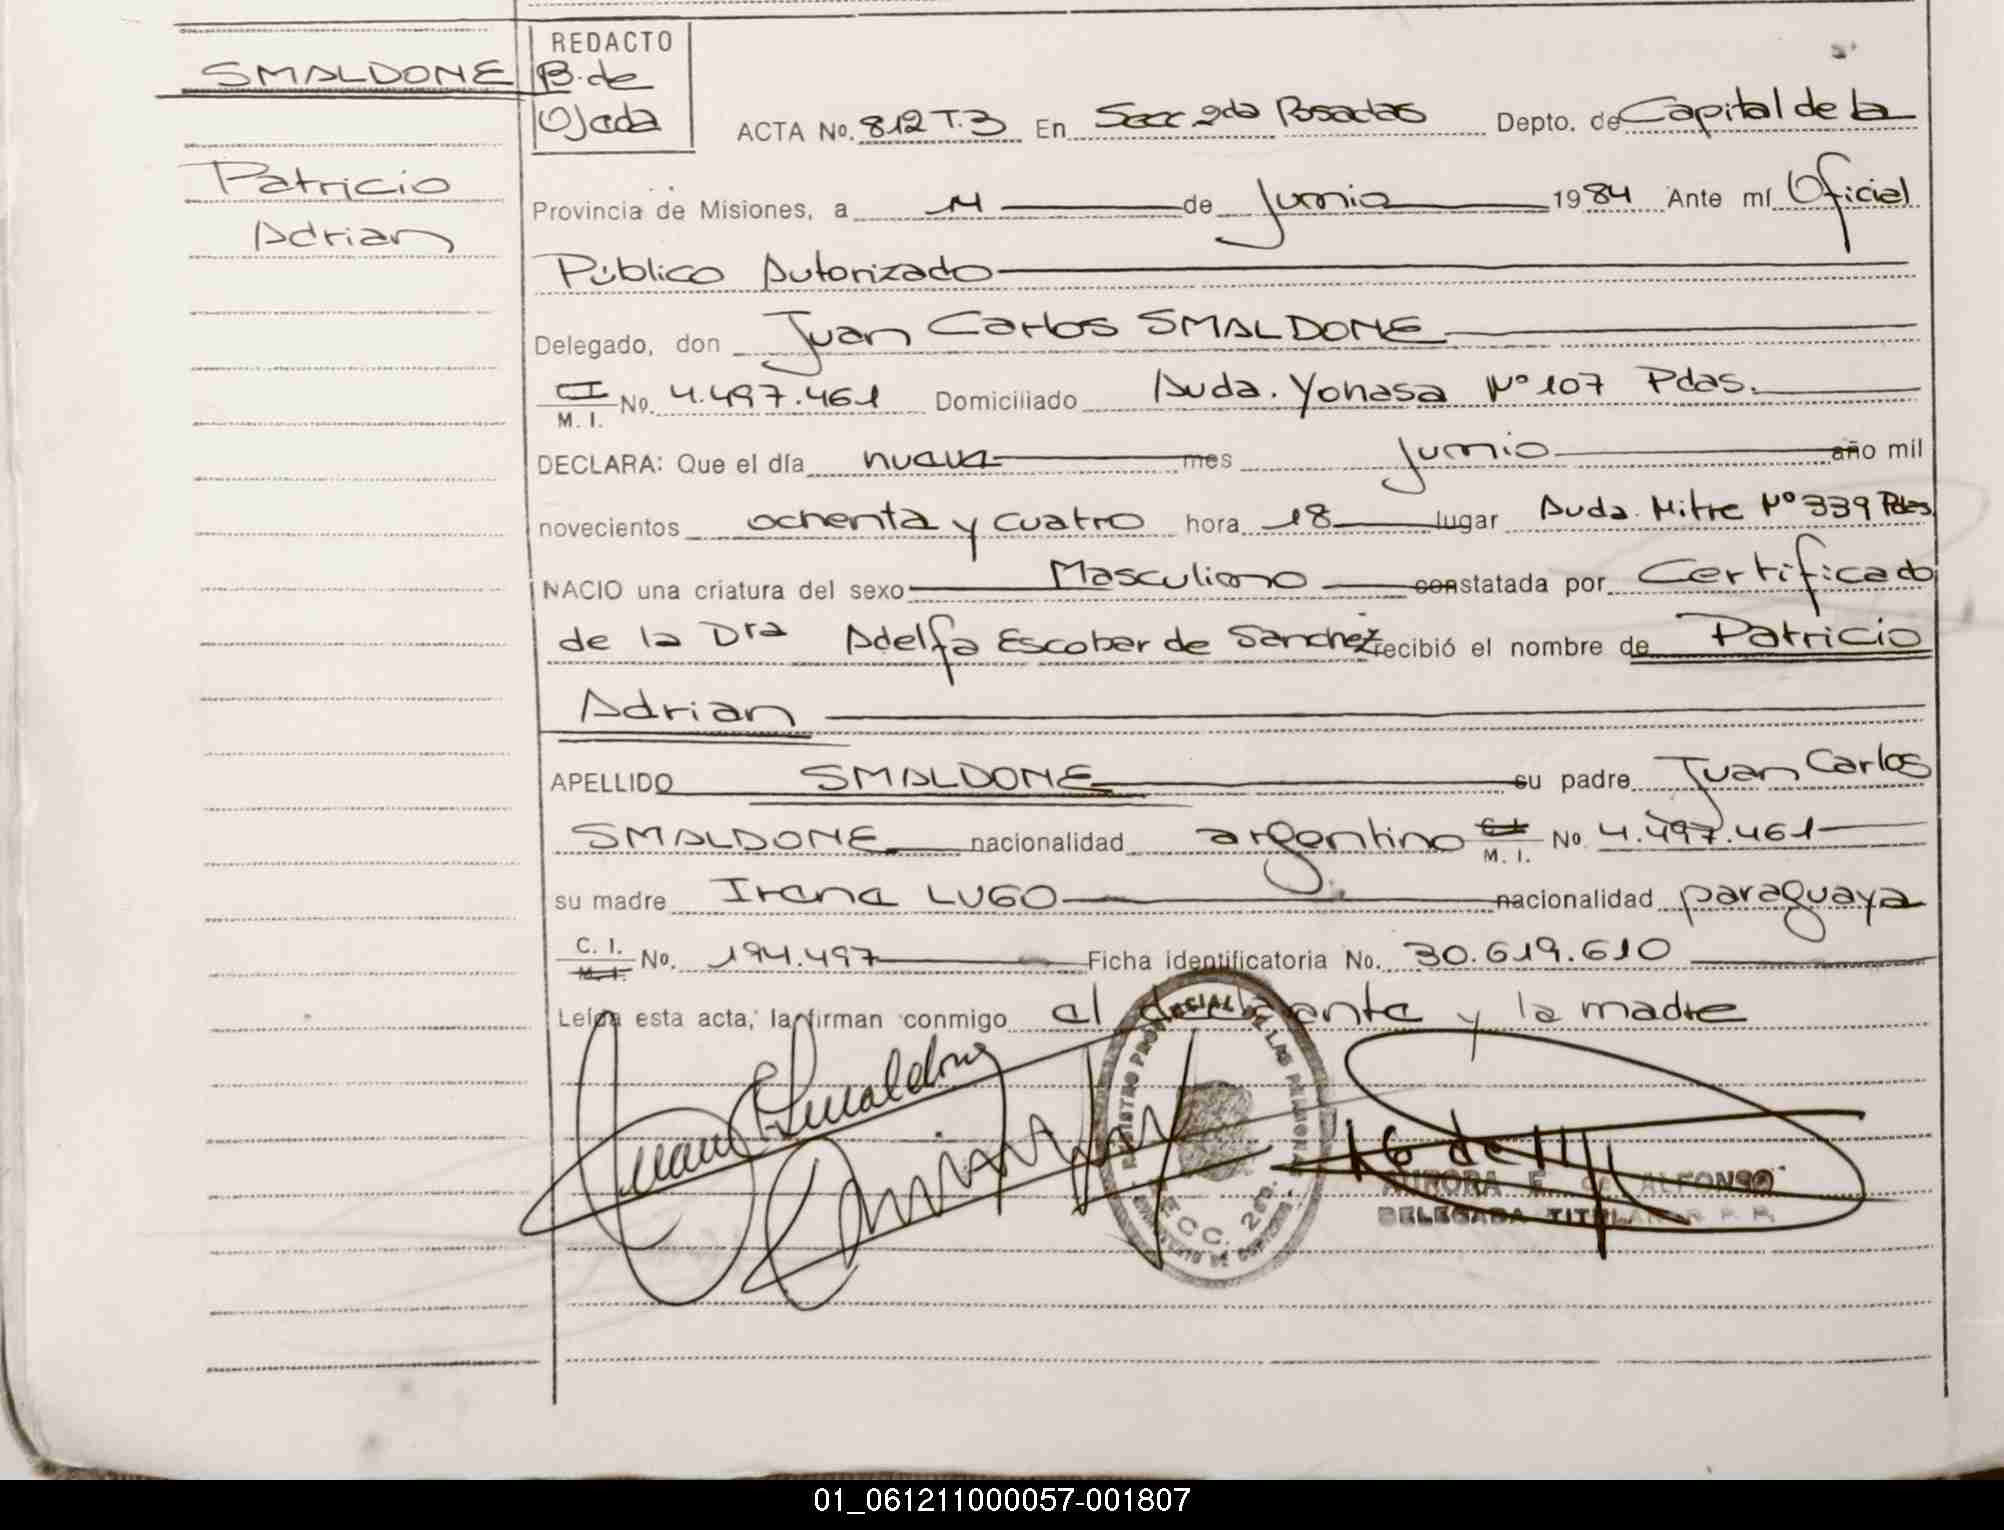 SMALDONE
Patricio
Adrian
REDACTO
B. de
Ojeda
ACTA No. 812 T.3 En Secc. 2da Posadas Depto. de Capital de la
Provincia de Misiones, a 14 de Junio 1984 Ante mí Oficial
Público Autorizado
Delegado, don Juan Carlos SMALDONE
C I
M. I. No. 4.497.461 Domiciliado Avda. Yonasa Nº 107 Pdas.
DECLARA: Que el día nueve mes Junio año mil
novecientos ochenta y cuatro hora 18 lugar Avda. Mitre Nº 339 Pdas
NACIO una criatura del sexo Masculino constatada por Certificado
de la Dra Adelfa Escobar de Sanchez recibió el nombre de Patricio
Adrian
APELLIDO SMALDONE su padre Juan Carlos
SMALDONE nacionalidad argentino C. I.
M. I. No 4.497.461
su madre Irene LUGO nacionalidad paraguaya
C. I.
M. I. No. 194.497 Ficha identificatoria No. 30.619.610
Leída esta acta, la firman conmigo el declarante y la madre
Juan C Smaldone
REGISTRO PROVINCIAL DE LAS PERSONAS
SECC. 2da.
AURORA E. DE ALFONSO
DELEGADA TITULAR R. P. P.
01_061211000057-001807